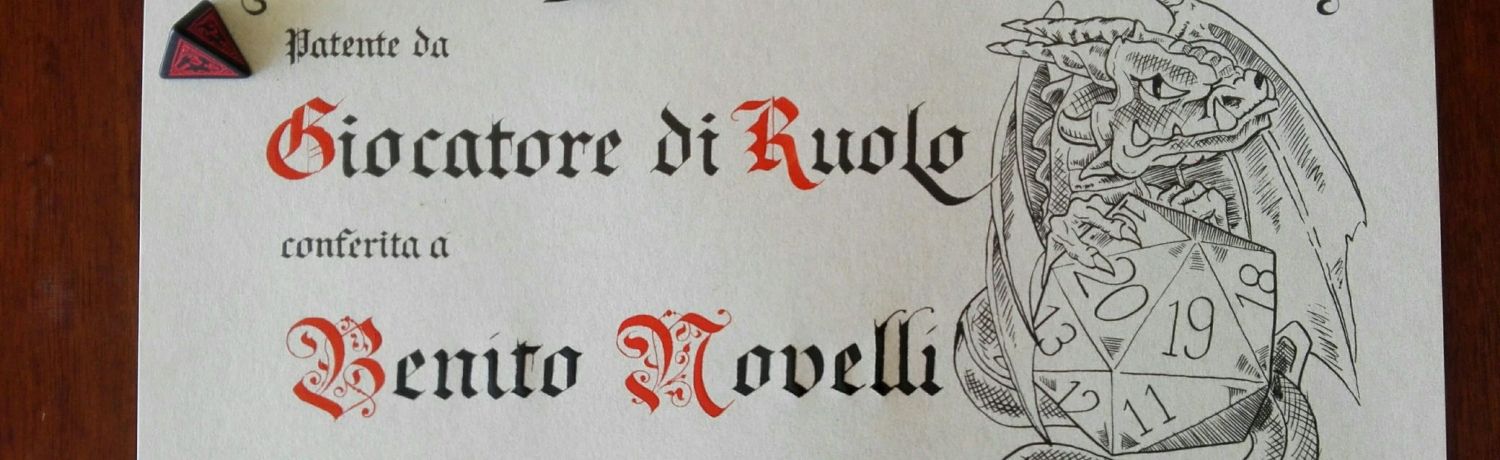 Patente da
Giocatore di Ruolo
conferita a
Benito Novelli
20
18
19
13
12
11